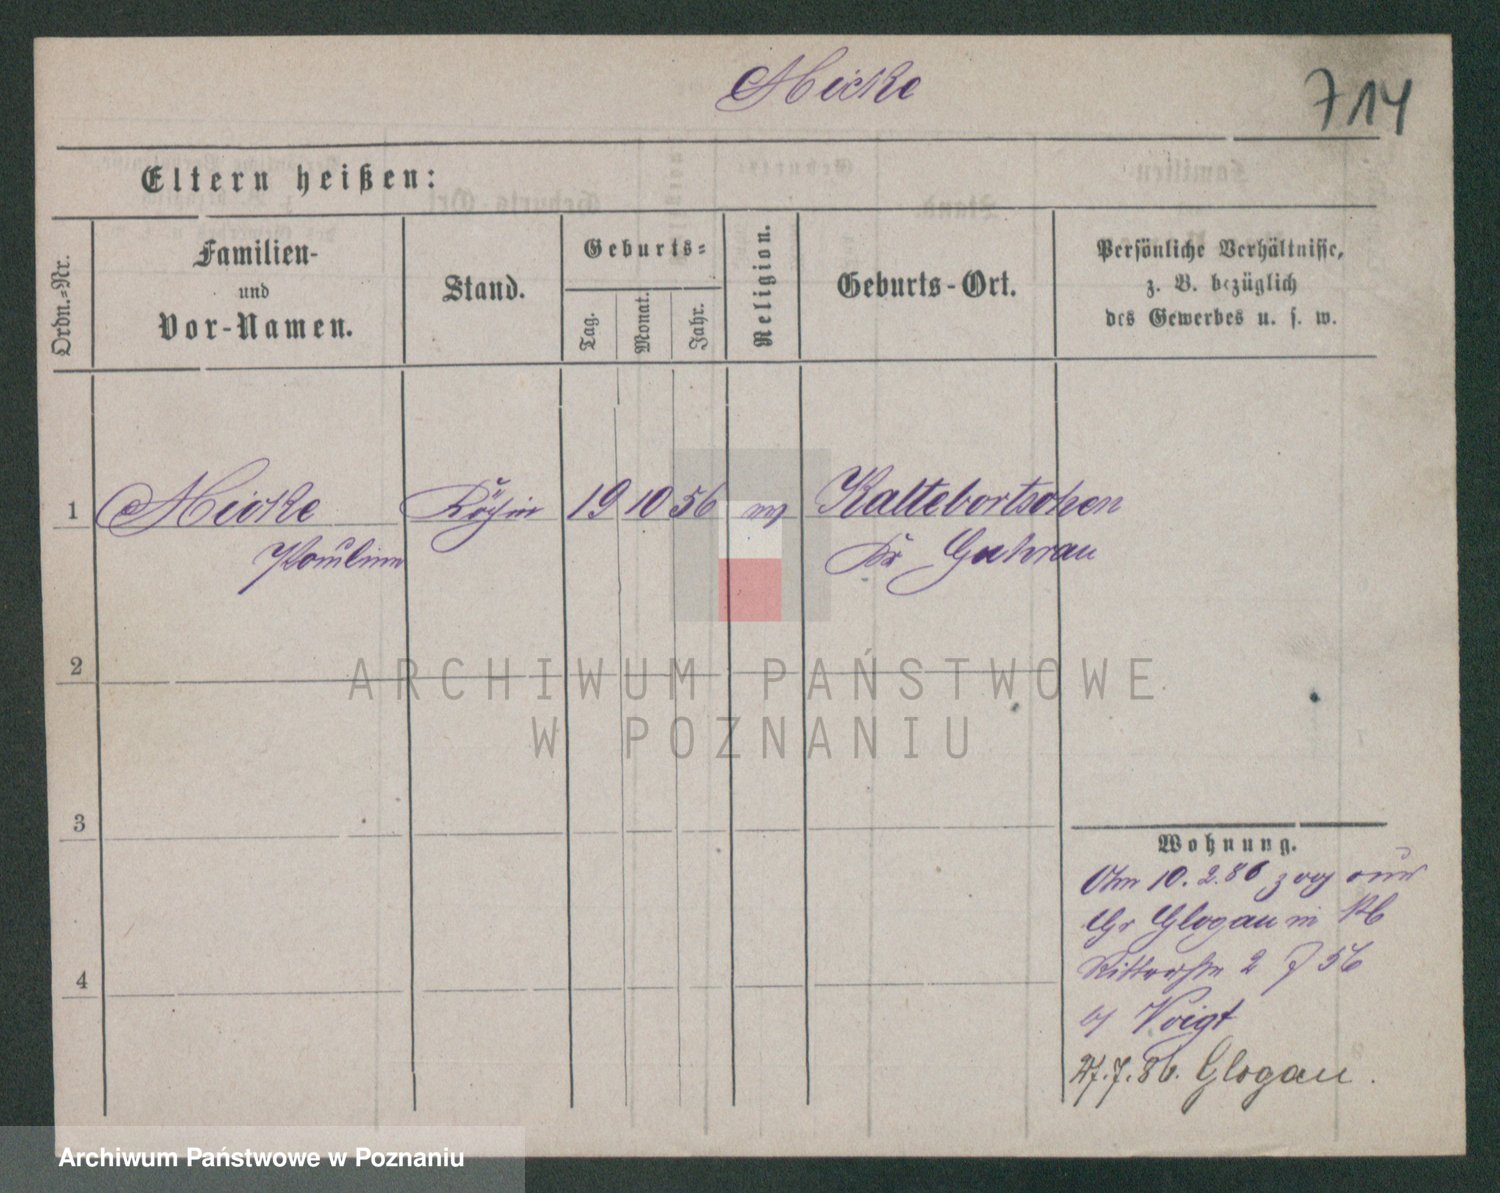 Micke
714
Eltern heißen:
Ordn.-Nr.
Familien-
und
Vor-Namen.
Stand.
Geburts-
Tag.
Monat.
Jahr.
Religion.
Geburts-Ort.
Persönliche Verhältnisse,
z. B. bezüglich
des Gewerbes u. s. w.
1 Micke Köchin 19 10 56 Kaltebortschen
Pauline Kr Guhrau
2
ARCHIWUM PAŃSTWOWE
W POZNANIU
3
Wohnung.
Am 10.2.86 zog aus
Gr Glogau in
Ritterstr 2 56
Voigt
4
27.7.86. Glogau.
Archiwum Państwowe w Poznaniu